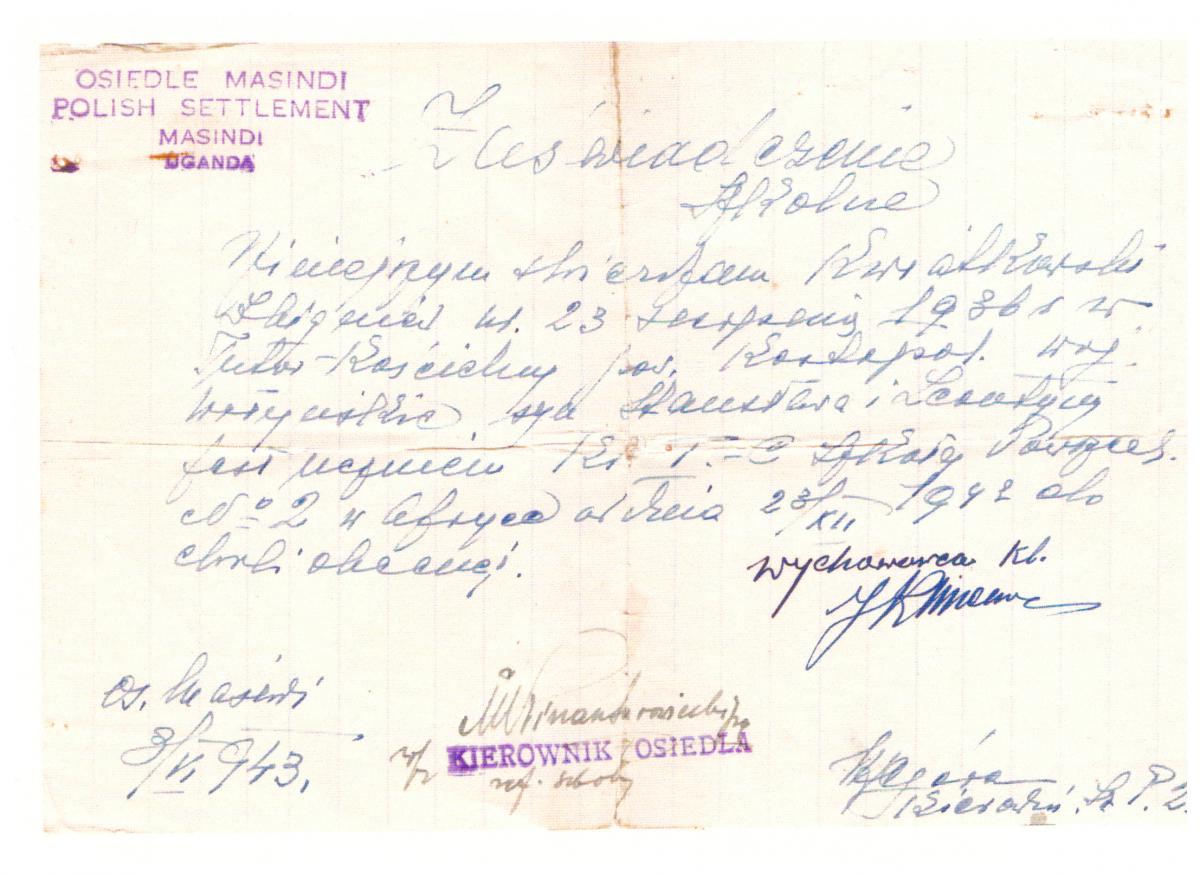 OSIEDLE MASINDI
POLISH SETTLEMENT
MASINDI
UGANDA
Zaświadczenie
Szkolne
Niniejszym stwierdzam Kwiatkowski
Zbigniew ur. 23 sierpnia 1936 r w
Tutor-Kościelny pow. Kostopol. woj.
Wołyńskie syn Stanisława i Leontyny
jest uczniem Kl. I.-C Szkoły Powszech.
No 2 w Afryce od dnia 23/XII 1942 do
chwili obecnej.
Wychowawca kl.
os. Masindi
3/VI 943.
KIEROWNIK OSIEDLA
ref. szkolny
Kierown. Sz. P. 2